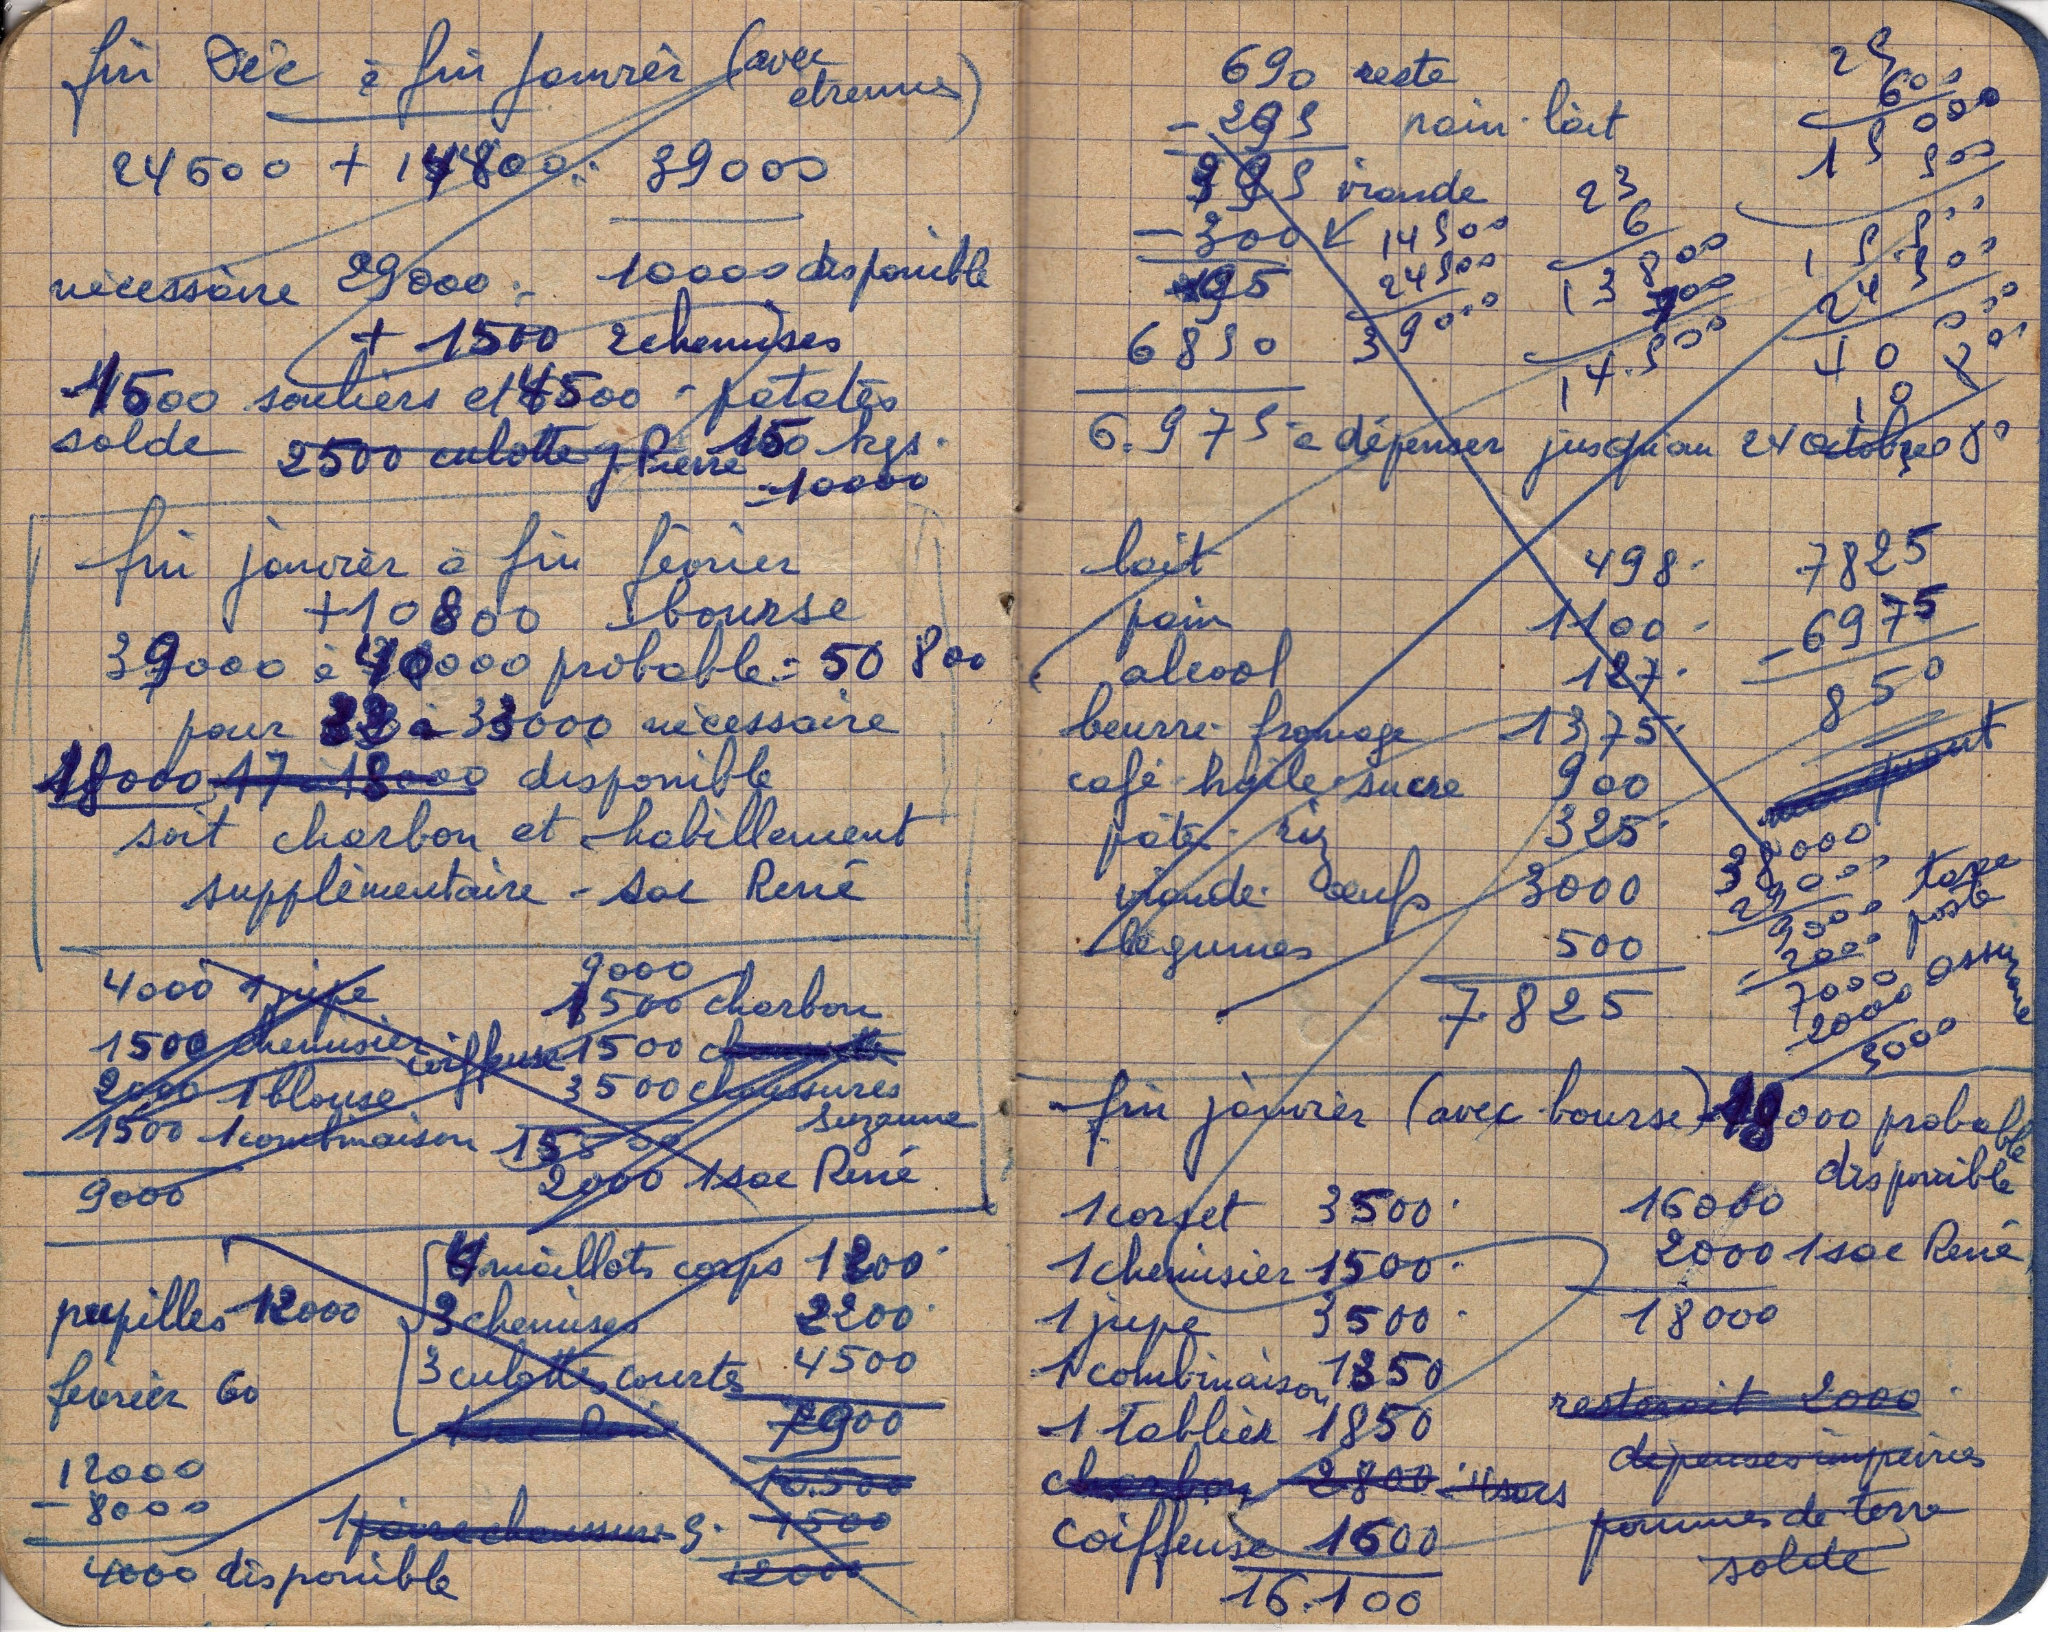 fin Déc à fin Janvier (avec
étrennes)
24500 + 14800 = 39000
nécessaire 29000 = 10000 disponible
+ 1500 2 chemises
4500 souliers et 4500 = patates
solde 2500 culotte J. Pierre 150 kgs.
= 10000
fin janvier à fin février
+ 10800 bourse
39000 à 40000 probable = 50 800
pour 32 à 33000 nécessaire
18000 17 à 18000 disponible
soit charbon et habillement
supplémentaire - sac René
4000 1 jupe
1500 chemisier coiffeuse
2000 1 blouse
1500 1 combinaison
9000
9000
1500 charbon
1500
3500 chaussures
Suzanne
15500
2000 1 sac René
pupilles 12000
février 60
4 maillots corps 1200
3 chemises 2200
3 culottes courtes 4500
7900
10.500
1 paire chaussures 1500
12000
12000
- 8000
4000 disponible
690 reste
- 295 pain - lait
395 viande
- 300
95
6850
6.975 à dépenser jusqu'au 24 octobre
14500
24500
39000
23
6
13800
700
14.500
25
600
15000
500
15500
24500
lait 498
pain 1100
alcool 127
beurre - fromage 1375
café - huile - sucre 900
pâte - riz 325
viande - oeufs 3000
légumes 500
7.825
7825
- 6975
850
38000
29000
9000 taxe
- 2000 poste
7000
2000 assurance
5000
fin janvier (avec bourse) 18000 probable
disponible
1 corset 3500
1 chemisier 1500
1 jupe 3500
1 combinaison 1350
1 tablier 1850
charbon 2800 - 4 sacs
coiffeuse 1600
16.100
16000
2000 1 sac René
18000
resterait 2000
dépenses impaires
pommes de terre
solde